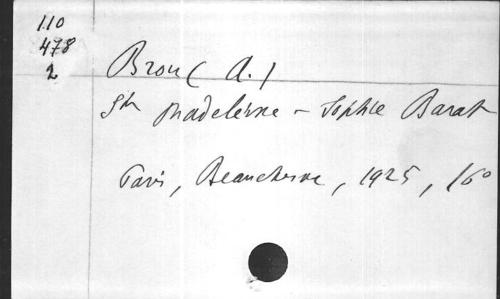 110
478
2
Brou (A.)
Ste Madeleine - Sophie Barat
Paris, Beauchesne, 1925, 16°